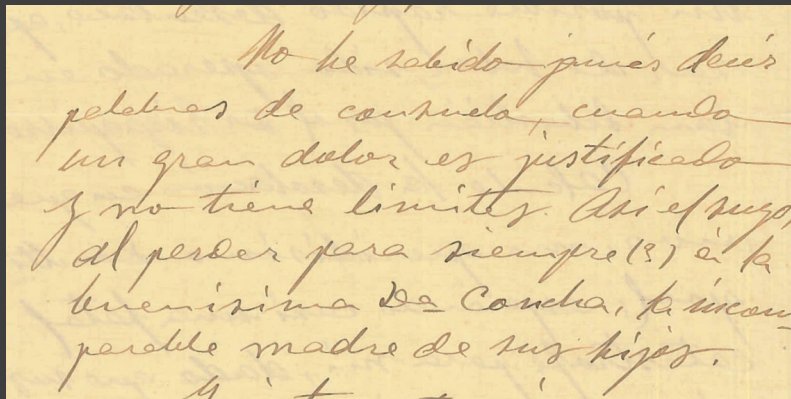 No he sabido jamás decir
palabras de consuelo, cuando
un gran dolor es justificado
y no tiene limites. Asi el suyo,
al perder para siempre (?) á la
buenisima Dª Concha, la incom-
parable madre de sus hijos.